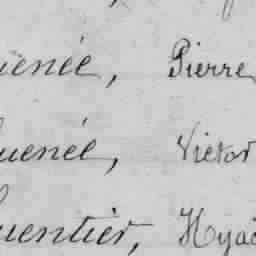 uenée, Pierre
uenée, Victor
uentier, Hyac